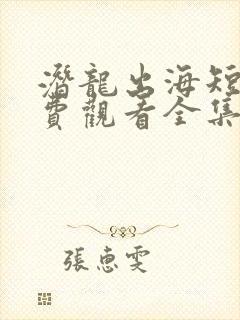 潛龍出海短
費觀看全集
張惠雯